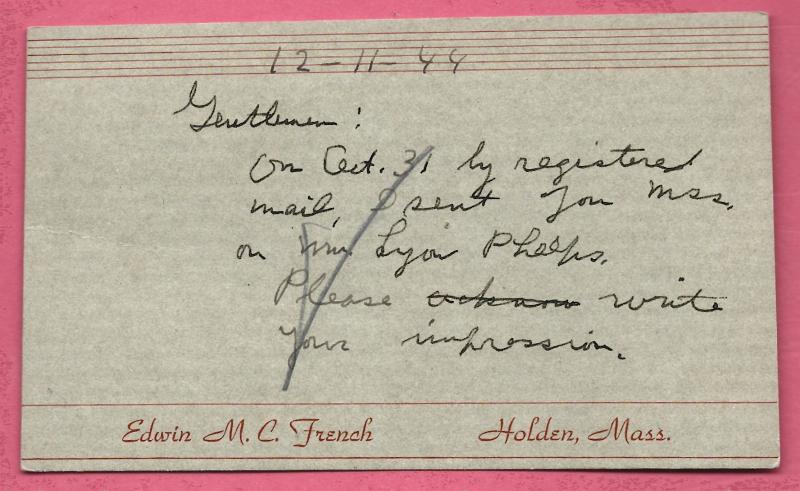 12-11-44
Gentlemen:
On Oct. 31 by registered
mail, I sent you mss.
on Wm. Lyon Phelps.
Please acknow write
your impression.
Edwin M. C. French Holden, Mass.